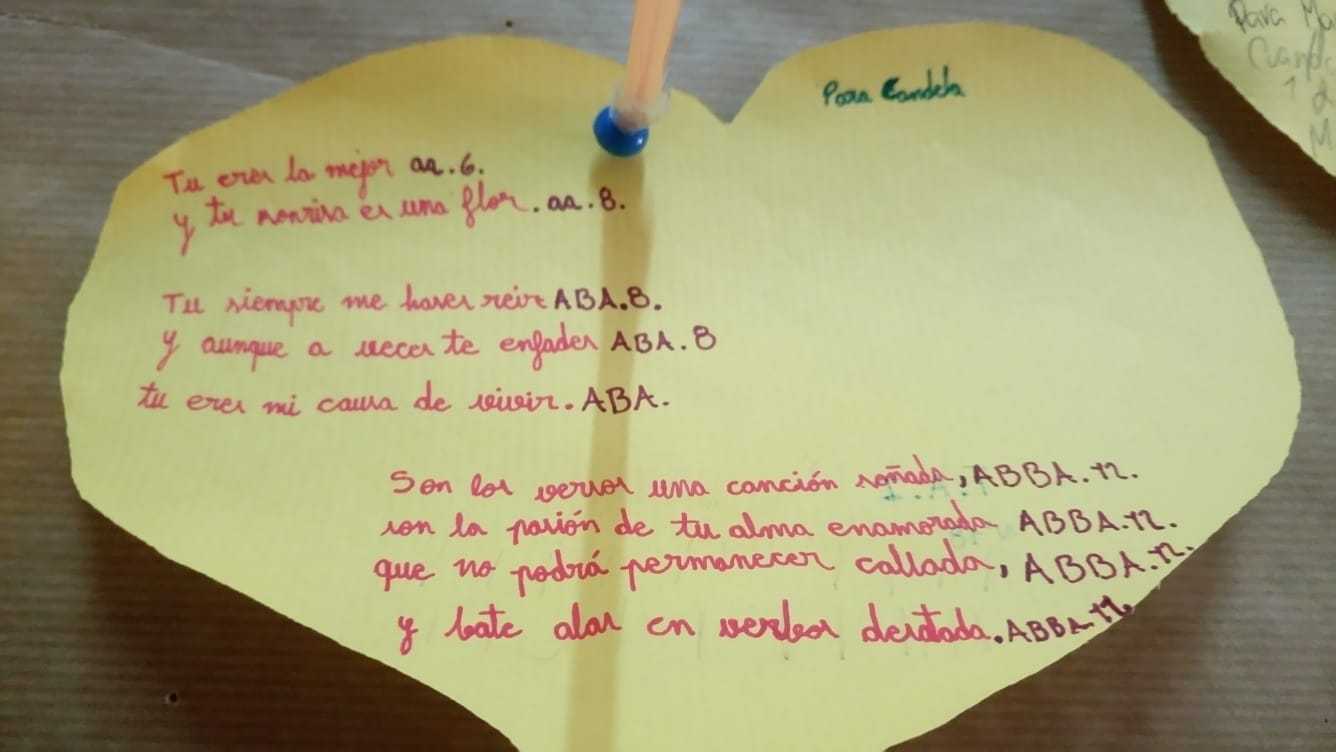 Para Candela
Tu eres la mejor aa.6.
y tu sonrisa es una flor. aa.8.
Tu siempre me haces reir ABA.8.
y aunque a veces te enfades ABA.8
tu eres mi causa de vivir. ABA.
Son los versos una canción soñada, ABBA.12.
son la pasión de tu alma enamorada ABBA.12.
que no podrá permanecer callada, ABBA.12.
y bate alas en verbos desatada. ABBA 12.
Para